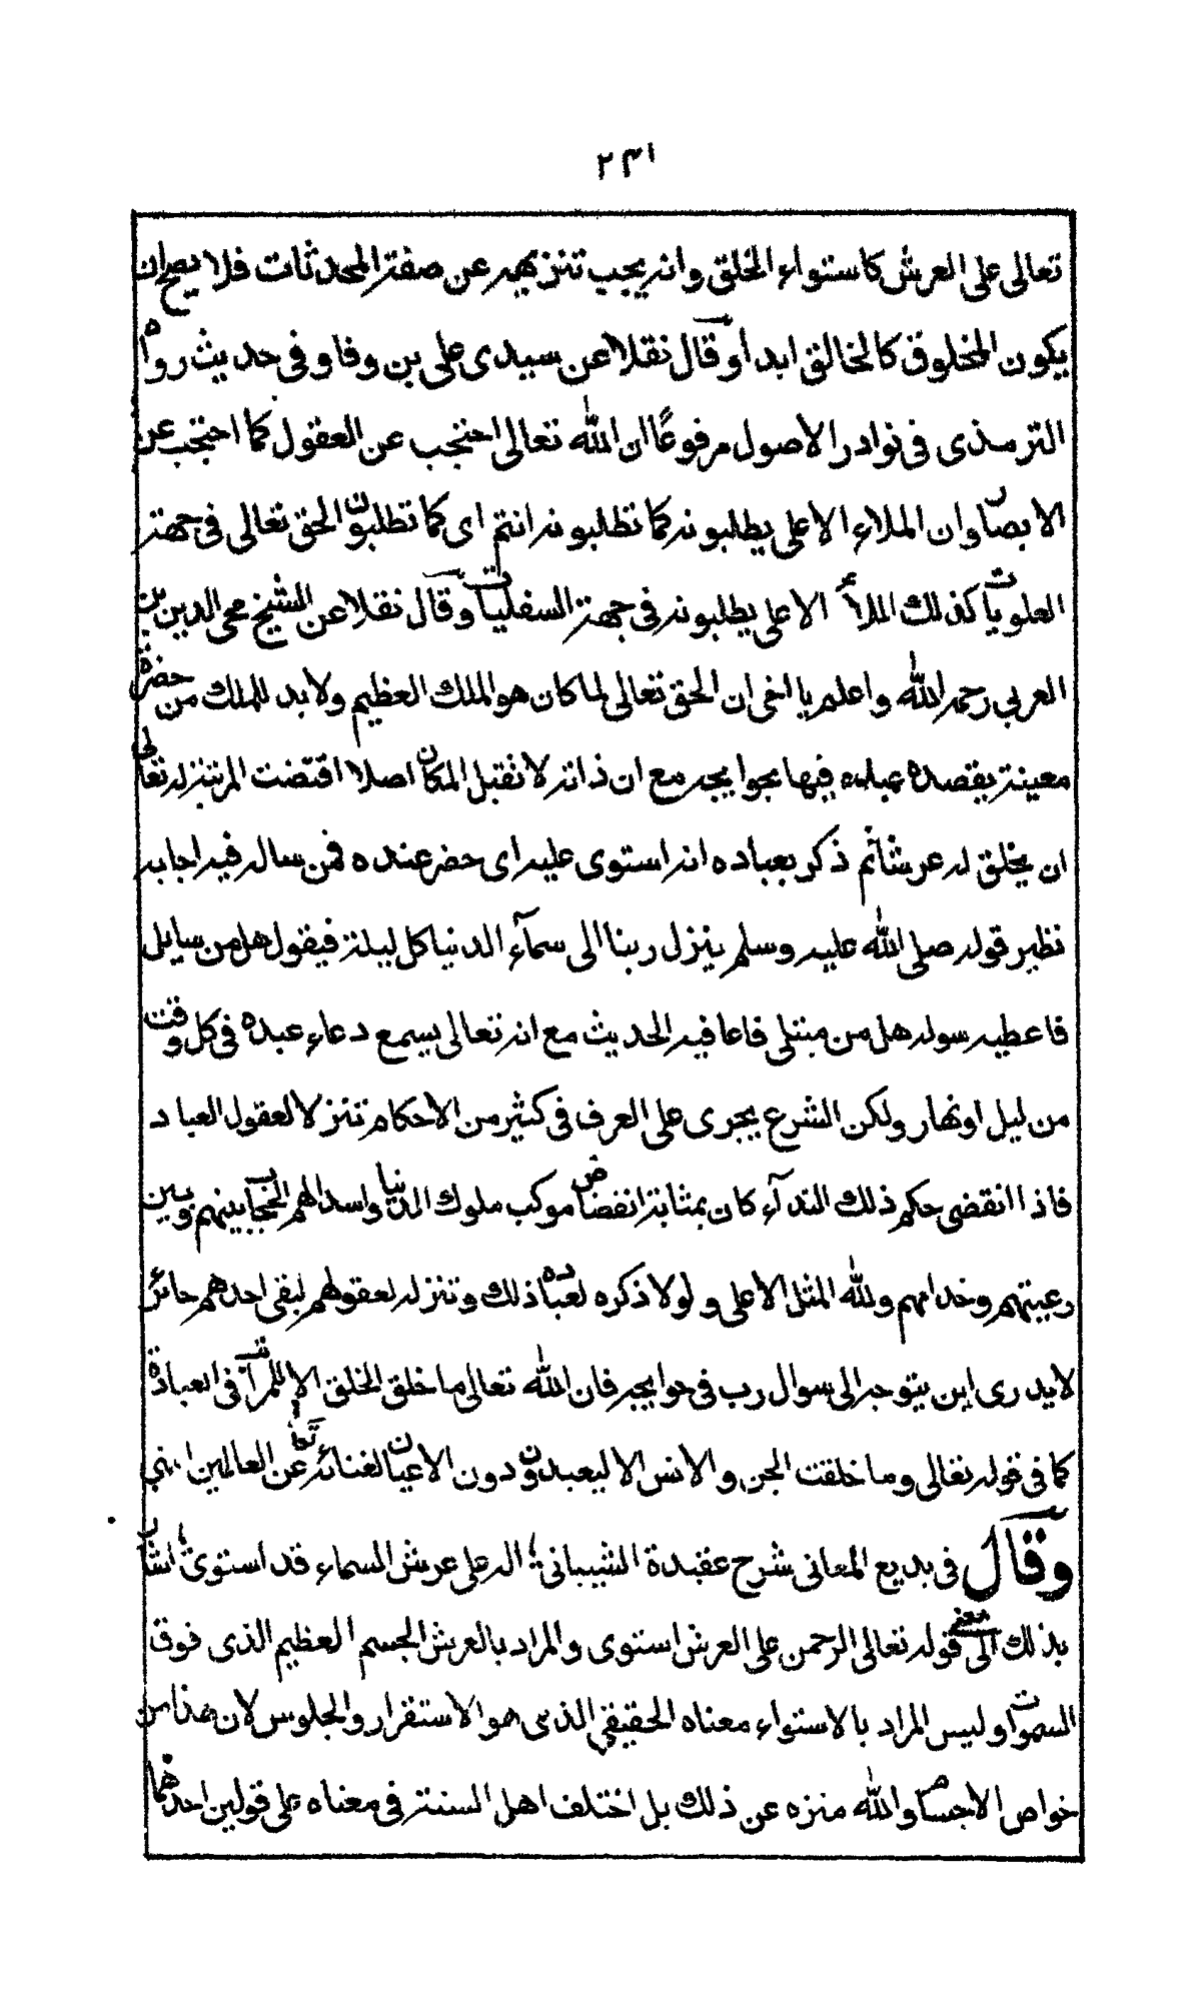 ٢٣١
تعالى على العرش كاستواء الخلق وانه يجب تنزيهه عن صفة المحدثات فلا يصح ان
يكون المخلوق كالخالق ابدا وقال نقلا عن سيدى على بن وفا وفى حديث رواه
الترمذى فى نوادر الاصول مرفوعًا ان الله تعالى احتجب عن العقول كما احتجب عن
الابصار وان الملاء الاعلى يطلبونه كما تطلبونه انتم اى كما تطلبون الحق تعالى فى جهة
العلويات كذلك الملأ الاعلى يطلبونه فى جهة السفليات وقال نقلا عن الشيخ محى الدين بن
العربى رحمه الله واعلم يا اخى ان الحق تعالى لما كان هو الملك العظيم ولا بد للملك من حضرة
معينة يقصده عباده فيها بحوايجه مع ان ذاته لا تقبل المكان اصلا اقتضت المرتبة له تعالى
ان يخلق له عرشا ثم ذكر بعباده انه استوى عليه اى حضر عنده فمن ساله فيه اجابه
نظير قوله صلى الله عليه وسلم ينزل ربنا الى سمآء الدنيا كل ليلة فيقول هل من سايل
فاعطيه سوله هل من مبتلى فاعافيه الحديث مع انه تعالى يسمع دعاء عبده فى كل وقت
من ليل او نهار ولكن الشرع يجرى على العرف فى كثير من الاحكام تنزلا لعقول العباد
فاذا انقضى حكم ذلك الندآء كان بمثابة انفضاض موكب ملوك الدنيا واسدالهم الحجاب بينهم وبين
رعيتهم وخدامهم ولله المثل الاعلى ولولا ذكره لعباده ذلك وتنزله لعقولهم لبقى احدهم حائر
لا يدرى اين يتوجه الى سوال رب فى حوايجه فان الله تعالى ما خلق الخلق الا للمراتب فى العبادة
كما فى قوله تعالى وما خلقت الجن والانس الا ليعبدون دون الاعيان لغنائه تعا عن العالمين انتهى
وقال فى بديع المعانى شرح عقيدة الشيبانى؛ اله على عرش السماء قد استوى؛ اشار
بذلك الى معنى قوله تعالى الرحمن على العرش استوى والمراد بالعرش الجسم العظيم الذى فوق
السموات وليس المراد بالاستواء معناه الحقيقى الذى هو الاستقرار والجلوس لان هذا من
خواص الاجسام والله منزه عن ذلك بل اختلف اهل السنة فى معناه على قولين احدهما